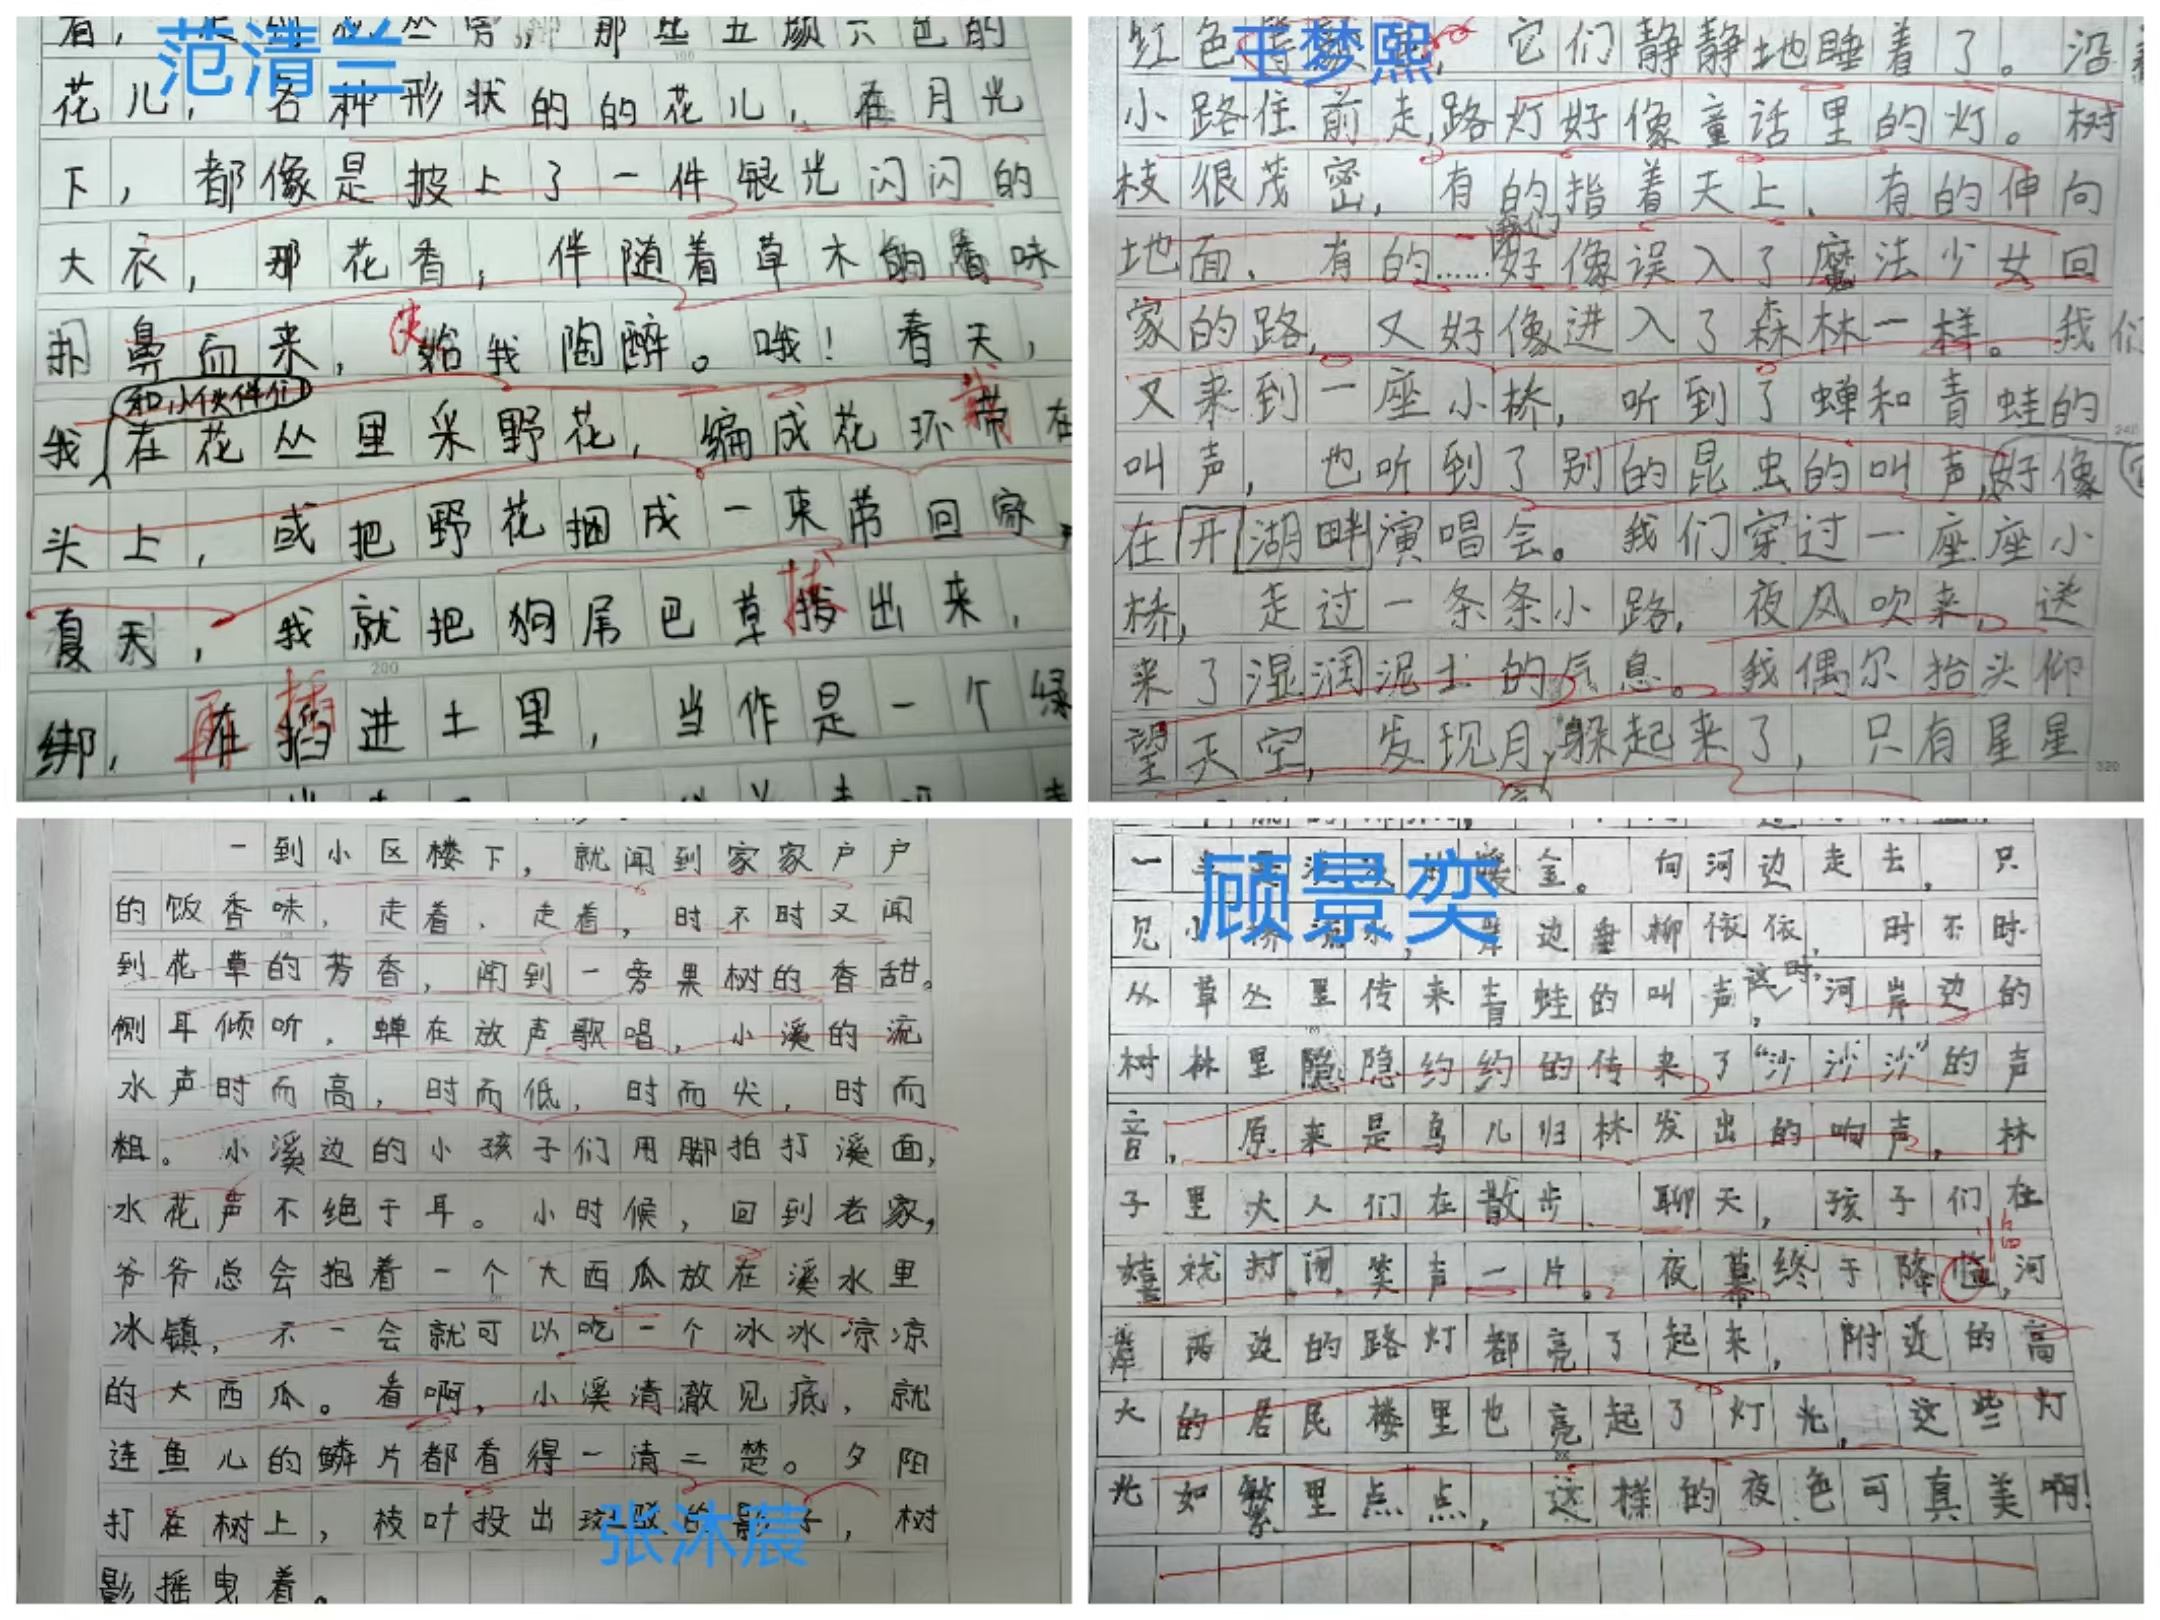 范清兰
花儿，各种形状的的花儿，在月光
下，都像是披上了一件银光闪闪的
大衣，那花香，伴随着草木的香味
扑鼻而来，使给我陶醉。哦！春天，
和小伙伴们
我在花丛里采野花，编成花环带在
头上，或把野花捆成一束带回家，
夏天，我就把狗尾巴草拨出来，
绑，再在插进土里，当作是一个绿
王梦熙
红色，它们静静地睡着了。沿
小路住前走，路灯好像童话里的灯。树
枝很茂密，有的指着天上，有的伸向
我们
地面，有的……好像误入了魔法少女回
家的路，又好像进入了森林一样。我们
又来到一座小桥，听到了蝉和青蛙的
叫声，也听到了别的昆虫的叫声，好像
在开湖畔演唱会。我们穿过一座座小
桥，走过一条条小路，夜风吹来，送
来了湿润泥土的气息。我偶尔抬头仰
望天空，发现月躲起来了，只有星星
一到小区楼下，就闻到家家户户
的饭香味，走着，走着，时不时又闻
到花草的芳香，闻到一旁果树的香甜。
侧耳倾听，蝉在放声歌唱，小溪的流
水声时而高，时而低，时而尖，时而
粗。小溪边的小孩子们用脚拍打溪面，
水花声不绝于耳。小时候，回到老家，
爷爷总会抱着一个大西瓜放在溪水里
冰镇，不一会就可以吃一个冰冰凉凉
的大西瓜。看啊，小溪清澈见底，就
连鱼儿的鳞片都看得一清二楚。夕阳
打在树上，枝叶投出斑驳的影子，树
张沐蕽
影摇曳着。
顾景奕
金。向河边走去，只
见小桥流水，岸边垂柳依依，时不时
这时，
从草丛里传来青蛙的叫声，河岸边的
树林里隐隐约约的传来了“沙沙沙”的声
音，原来是鸟儿归林发出的响声，林
子里大人们在散步、聊天，孩子们在
嬉戏打闹，笑声一片。夜幕终于降临，河
岸两边的路灯都亮了起来，附近的高
大的居民楼里也亮起了灯光，这些灯
光如繁里点点，这样的夜色可真美啊！